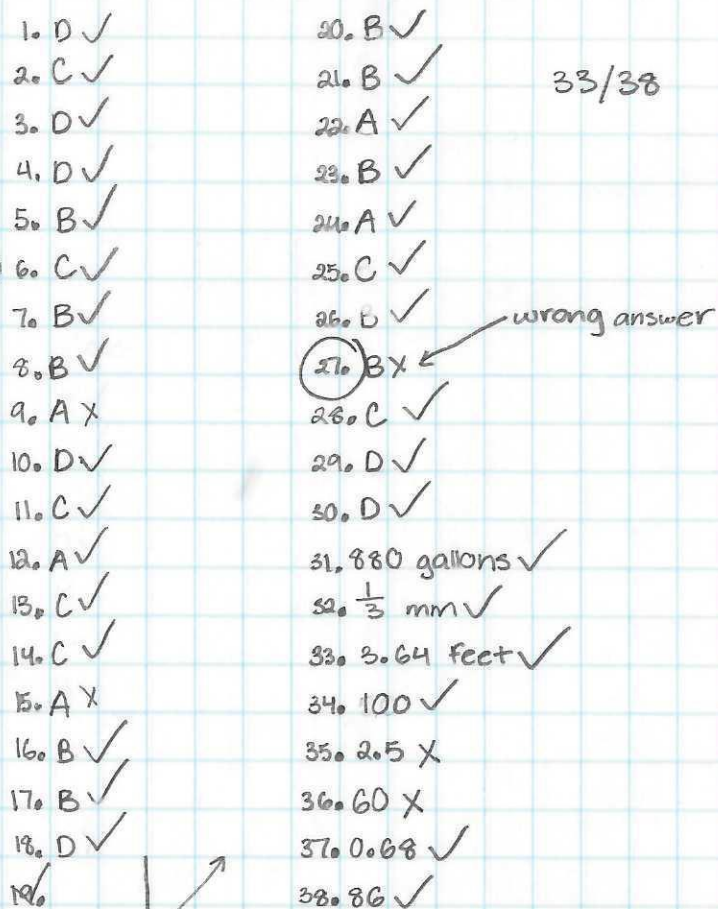 1. D ✓
2. C ✓
3. D ✓
4. D ✓
5. B ✓
6. C ✓
7. B ✓
8. B ✓
9. A X
10. D ✓
11. C ✓
12. A ✓
13. C ✓
14. C ✓
15. A X
16. B ✓
17. B ✓
18. D ✓
19. ✓
20. B ✓
21. B ✓
22. A ✓
23. B ✓
24. A ✓
25. C ✓
26. B ✓
27. B X
28. C ✓
29. D ✓
30. D ✓
31. 880 gallons ✓
32. 1/3 mm ✓
33. 3.64 feet ✓
34. 100 ✓
35. 2.5 X
36. 60 X
37. 0.68 ✓
38. 86 ✓
33/38
wrong answer